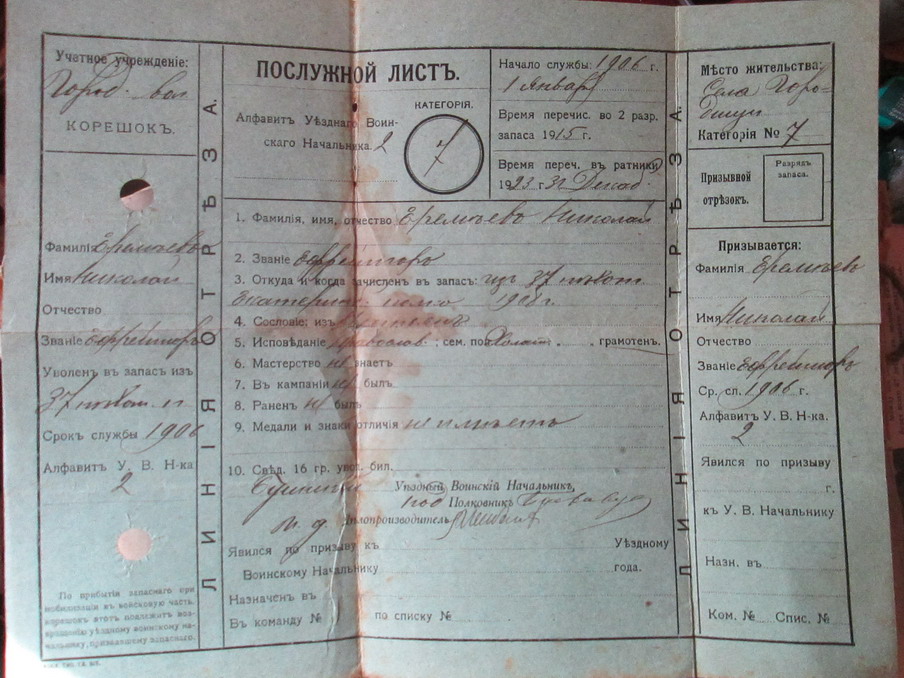 Учетное учрежденіе:
Город. вол
КОРЕШОКЪ.
Фамилія Еремѣевъ
Имя Николай
Отчество
Званіе Ефрейторъ
Уволен въ запасъ изъ
37 пѣхот. п
Срокъ службы 1906
Алфавитъ У. В. Н-ка
2
По прибытіи запаснаго при
мобилизаціи въ войсковую часть,
корешокъ этотъ подлежитъ воз-
вращенію уѣздному воинскому на-
чальнику, призвавшему запаснаго.
ЛИНІЯ ОТРѢЗА.
ПОСЛУЖНОЙ ЛИСТЪ.
Алфавитъ Уѣзднаго Воин-
скаго Начальника 2
КАТЕГОРІЯ.
7
Начало службы: 1906 г.
1 Январь
Время перечис. во 2 разр.
запаса 1915 г.
Время переч. въ ратники
1923 г 31 Декаб.
1. Фамилія, имя, отчество Еремѣевъ Николай
2. Званіе Ефрейторъ
3. Откуда и когда зачисленъ въ запасъ: изъ 37 пѣхот
Екатерин. полка 1908 г.
4. Сословіе; изъ
5. Исповѣданіе Православ; сем. пол. Холост., грамотенъ.
6. Мастерство не знаетъ
7. Въ кампаніи не былъ
8. Раненъ не былъ
9. Медали и знаки отличія не имѣетъ
10. Свѣд. 16 гр. увол. бил.
Уѣздный Воинскій Начальникъ,
Под Полковникъ
И. д. Дѣлопроизводитель
Явился по призыву къ Уѣздному
Воинскому Начальнику года.
Назначенъ въ
Въ команду № по списку №
ЛИНІЯ ОТРѢЗА.
Мѣсто жительства:
Села Горо-
дищи
Категорія № 7
Призывной
отрѣзокъ.
Разрядъ
запаса.
Призывается:
Фамилія Еремѣевъ
Имя Николай
Отчество
Званіе Ефрейторъ
Ср. сл. 1906 г.
Алфавитъ У. В. Н-ка.
2
Явился по призыву
г.
къ У. В. Начальнику
Назн. въ
Ком. № Спис. №